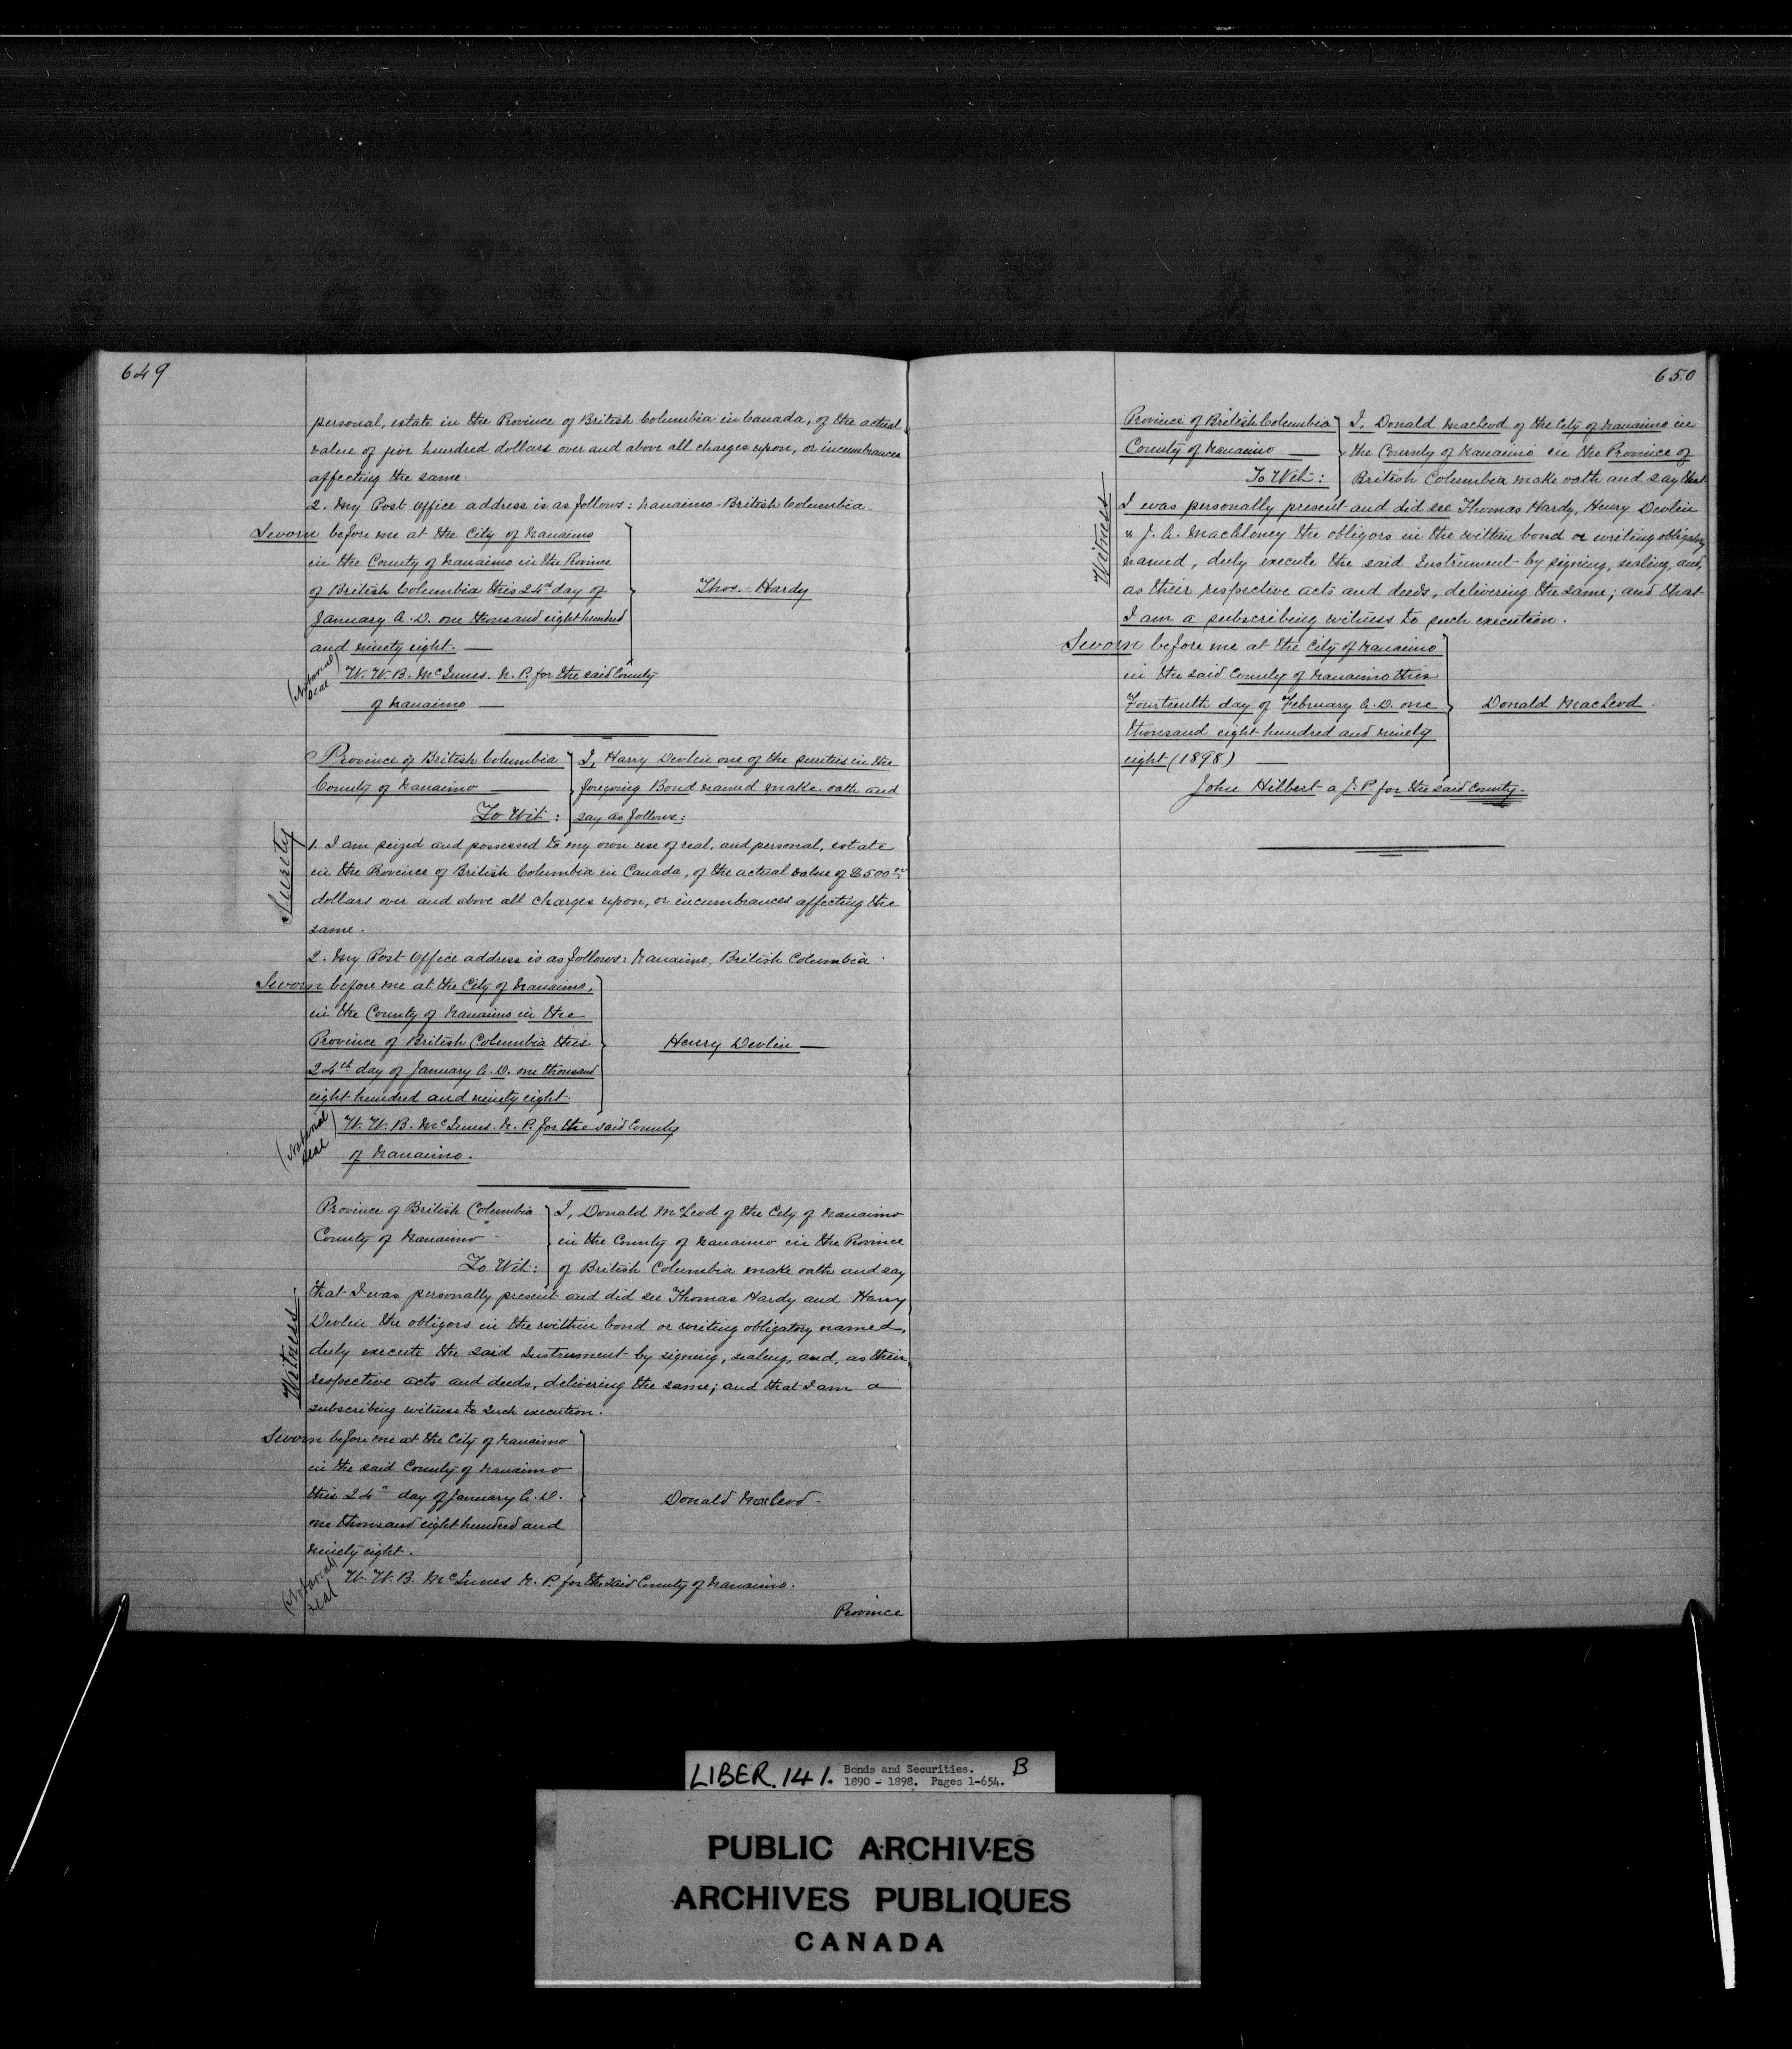 649
personal, estate in the Province of British Columbia in Canada, of the actual
value of five hundred dollars over and above all charges upon, or incumbrances
affecting the same.
2. My Post Office address is as follows: Nanaimo - British Columbia.
Sworn before me at the City of Nanaimo
in the County of Nanaimo in the Province
of British Columbia this 24th day of
January A.D. one thousand eight hundred
and ninety eight.
Thos. Hardy
(Notarial seal)
W. W. B. McInnes. N. P. for the said County
of Nanaimo
Province of British Columbia
County of Nanaimo
To Wit:
I, Harry Devlin one of the sureties in the
foregoing Bond named make oath and
say as follows:
Surety
1. I am seized and possessed to my own use of real, and personal, estate
in the Province of British Columbia in Canada, of the actual value of $500.00
dollars over and above all charges upon, or incumbrances affecting the
same.
2. My Post Office address is as follows: Nanaimo, British Columbia.
Sworn before me at the City of Nanaimo,
in the County of Nanaimo in the
Province of British Columbia this
24th day of January A.D. one thousand
eight hundred and ninety eight.
Henry Devlin
(Notarial seal)
W. W. B. McInnes. N. P. for the said County
of Nanaimo.
Province of British Columbia
County of Nanaimo
To Wit:
I, Donald McLeod of the City of Nanaimo
in the County of Nanaimo in the Province
of British Columbia make oath and say
Witness.
that I was personally present and did see Thomas Hardy and Harry
Devlin the obligors in the within bond or writing obligatory named,
duly execute the said Instrument by signing, sealing, and, as their
respective acts and deeds, delivering the same; and that I am a
subscribing witness to such execution.
Sworn before me at the City of Nanaimo
in the said County of Nanaimo
this 24" day of January A.D.
one thousand eight hundred and
ninety eight.
Donald MacLeod
(Notarial seal)
W. W. B. McInnes N. P. for the said County of Nanaimo.
Province
650
Province of British Columbia
County of Nanaimo
To Wit:
I, Donald MacLeod of the City of Nanaimo in
the County of Nanaimo in the Province of
British Columbia make oath and say that
Witness
I was personally present and did see Thomas Hardy, Henry Devlin
the obligors in the within bond or writing obligatory
named, duly execute the said Instrument by signing, sealing, and,
as their respective acts and deeds, delivering the same; and that
I am a subscribing witness to such execution.
Sworn before me at the City of Nanaimo
in the said County of Nanaimo this
Fourteenth day of February A.D. one
thousand eight hundred and ninety
eight (1898)
Donald MacLeod.
John Hilbert a J.P. for the said County.
LIBER. 141. Bonds and Securities. B
1890 - 1898. Pages 1-654.
PUBLIC ARCHIVES
ARCHIVES PUBLIQUES
CANADA